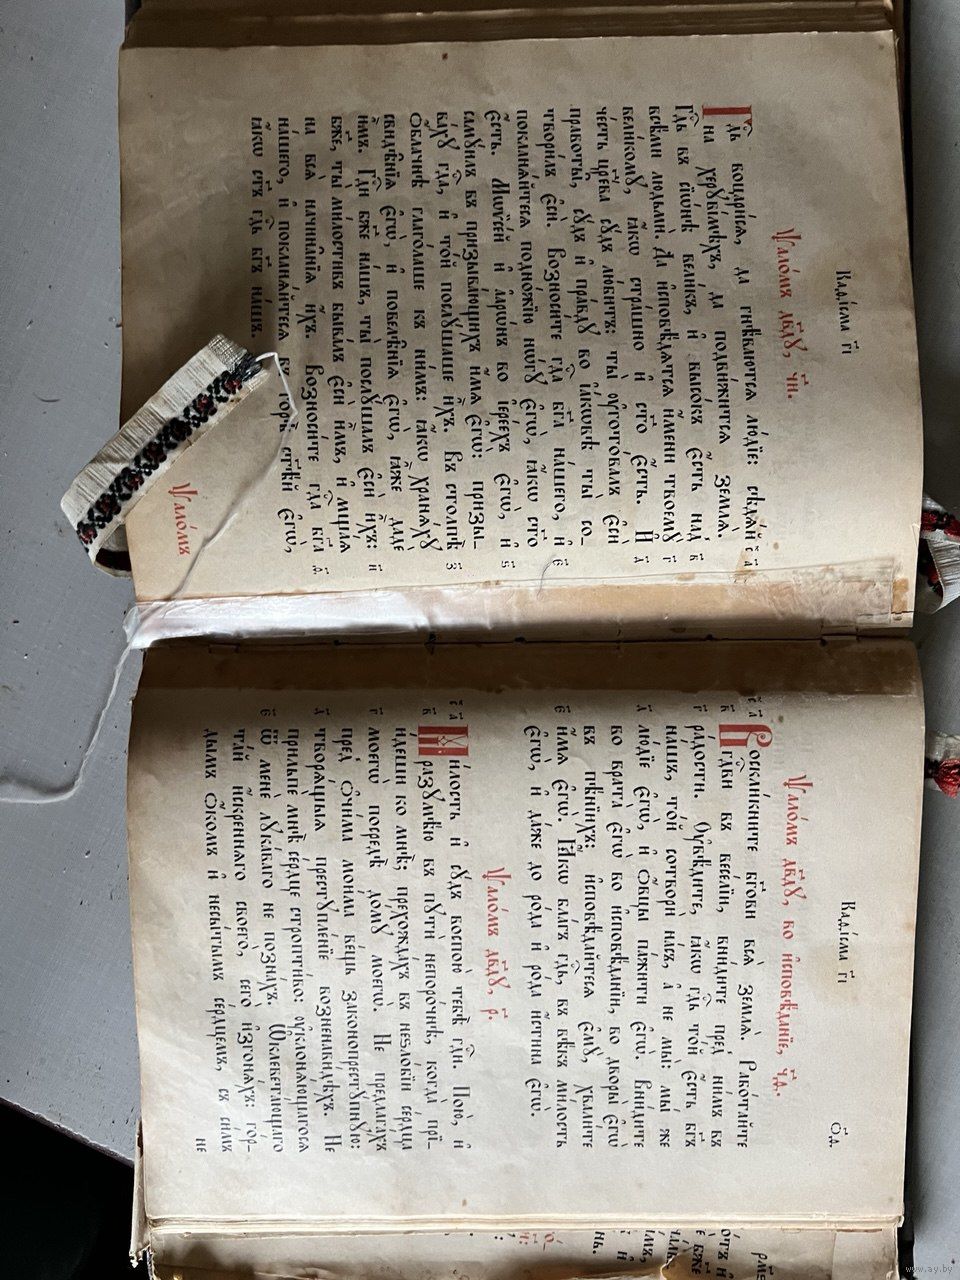 Каѳі́сма г҃і
Ѱало́мъ дв҃дꙋ, ч҃и.
Гдⷭ҇ь воцари́сѧ, да гнѣ́ваютсѧ лю́дїе: сѣдѧ́й
на херꙋві́мѣхъ, да подви́житсѧ землѧ̀.
Гдⷭ҇ь въ сїѡ́нѣ вели́къ, и҆ высо́къ є҆́сть над̾
всѣ́ми людьмѝ. Да и҆сповѣ́дѧтсѧ и҆́мени твоемꙋ̀
вели́комꙋ, ꙗ҆́кѡ стра́шно и҆ ст҃о є҆́сть. И҆
че́сть царе́ва сꙋ́дъ лю́битъ: ты̀ ᲂу҆гото́валъ є҆сѝ
правѡты̑, сꙋ́дъ и҆ пра́вдꙋ во і҆а́кѡвѣ ты̀ со-
твори́лъ є҆сѝ. Возноси́те гдⷭ҇а бг҃а на́шего, и҆
покланѧ́йтесѧ подно́жїю но́гꙋ є҆гѡ̀, ꙗ҆́кѡ ст҃о
є҆́сть. Мѡѷсе́й и҆ а҆арѡ́нъ во і҆ере́ехъ є҆гѡ̀, и҆
самꙋи́лъ въ призыва́ющихъ и҆́мѧ є҆гѡ̀: призы-
ва́хꙋ гдⷭ҇а, и҆ то́й послꙋ́шаше и҆̀хъ. Въ столпѣ̀
ѻ҆́блачнѣ глаго́лаше къ ни̑мъ: ꙗ҆́кѡ хранѧ́хꙋ
свидѣ̑нїѧ є҆гѡ̀, и҆ повелѣ̑нїѧ є҆гѡ̀, ꙗ҆̀же дадѐ
и҆̀мъ. Гдⷭ҇и бж҃е на́шъ, ты̀ послꙋ́шалъ є҆сѝ и҆́хъ:
бж҃е, ты̀ ми́лостивъ быва́лъ є҆сѝ и҆̀мъ, и҆ мща́ѧ
на всѧ̑ начина̑нїѧ и҆́хъ. Возноси́те гдⷭ҇а бг҃а
на́шего, и҆ покланѧ́йтесѧ въ горѣ̀ ст҃ѣ́й є҆гѡ̀,
ꙗ҆́кѡ ст҃ъ гдⷭ҇ь бг҃ъ на́шъ.
Ѱало́мъ
Каѳі́сма г҃і
ѻ҃д.
Ѱало́мъ дв҃дꙋ, во и҆сповѣ́данїе, ч҃ѳ.
Воскли́кните бг҃ови всѧ̀ землѧ̀. Рабо́тайте
гдⷭ҇еви въ весе́лїи, вни́дите пред̾ ни́мъ въ
ра́дости. Оу҆вѣ́дите, ꙗ҆́кѡ гдⷭ҇ь то́й є҆́сть бг҃ъ
на́шъ, то́й сотворѝ на́съ, а҆ не мы̀: мы́ же
лю́дїе є҆гѡ̀, и҆ ѻ҆́вцы па́жити є҆гѡ̀. Вни́дите
во врата̀ є҆гѡ̀ во и҆сповѣ́данїи, во дворы̀ є҆гѡ̀
въ пѣ́нїихъ: и҆сповѣ́дайтесѧ є҆мꙋ̀, хвали́те
и҆́мѧ є҆гѡ̀. Ꙗ҆́кѡ бл҃гъ гдⷭ҇ь, въ вѣ́къ ми́лость
є҆гѡ̀, и҆ да́же до ро́да и҆ ро́да и҆́стина є҆гѡ̀.
Ѱало́мъ дв҃дꙋ, р҃.
Ми́лость и҆ сꙋ́дъ воспою̀ тебѣ̀ гдⷭ҇и. Пою̀, и҆
разꙋмѣ́ю въ пꙋтѝ непоро́чнѣ, когда̀ прїи́-
деши ко мнѣ̀; прехожда́хъ въ неѕло́бїи се́рдца
моегѡ̀ посредѣ̀ до́мꙋ моегѡ̀. Не предлага́хъ
пред̾ ѻ҆чи́ма мои́ма ве́щь законопрестꙋ́пнꙋю:
творѧ́щыѧ престꙋпле́нїе возненави́дѣхъ. Не
прильпѐ мнѣ̀ се́рдце стропти́во: ᲂу҆клонѧ́ющагосѧ
ѿ менє̀ лꙋка́ваго не позна́хъ. Ѡ҆клевета́ющаго
та́й и҆́скреннѧго своего̀, сего̀ и҆згонѧ́хъ: го́р-
дымъ ѻ҆́комъ и҆ несы́тымъ се́рдцемъ, съ си́мъ
не
www.ay.by